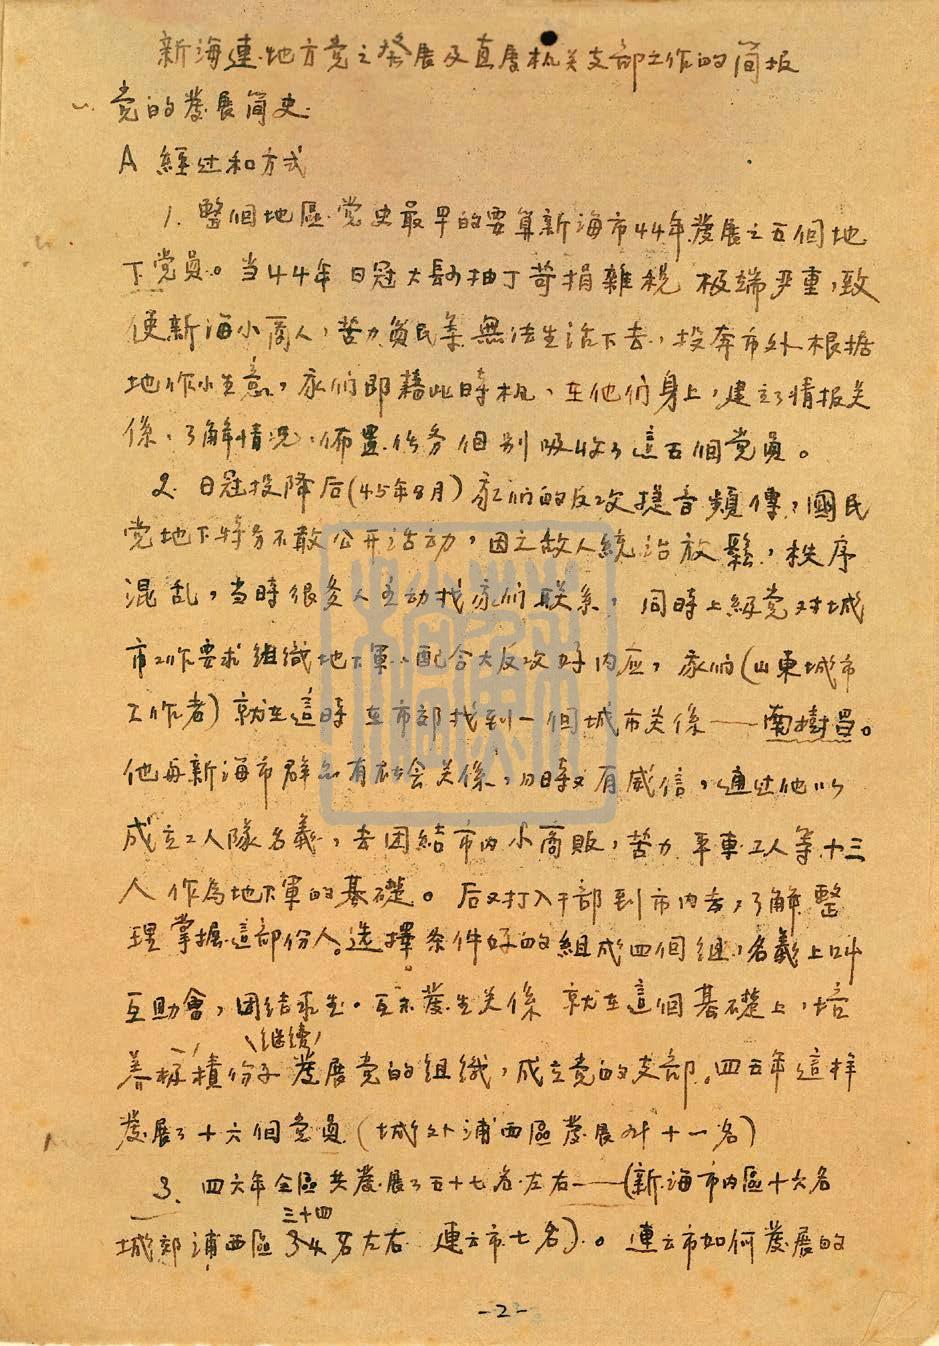 新海連地方党之発展及直属机关支部工作的简报
党的發展简史
A 經过和方式
1. 整個地區党史最早的要算新海市44年發展之五個地
下党員。当44年日冠大長的抽丁苛捐雜税极端严重，致
使新海小商人，苦力貧民等無法生活下去，投奔市外根据
地作小生意，我们即藉此時机，在他们身上，建立了情报关
係，了解情况，佈置任务個别吸收了這五個党員。
2. 日冠投降后(45年8月)我们的反攻提音頻傳，國民
党地下特务不敢公开活动，因之敌人統治放鬆，秩序
混乱，当時很多人主动找我们联系，同時上級党对城
市工作要求組織地下軍，配合大反攻好内应，我们(山東城市
工作者)就在這時在市部找到一個城市关係——南樹昌。
他每新海市群众有社会关係，同時又有威信，通过他以
成立工人隊名義，去团結市内小商販，苦力平車工人等十三
人作為地下軍的基礎。后又打入干部到市内去，了解整
理掌握這部份人。选擇条件好的組成四個组，名義上叫
互助會，团结求生。互不發生关係 就在這個基礎上，培
養积積份子继续發展党的組織，成立党的支部。四五年這样
發展了十六個党員(城外浦西區發展 十一名)
3. 四六年全區共發展了五十七名左右——(新海市内區十六名
城郊浦西區34三十四名左右 連云市七名)。連云市如何發展的
-2-